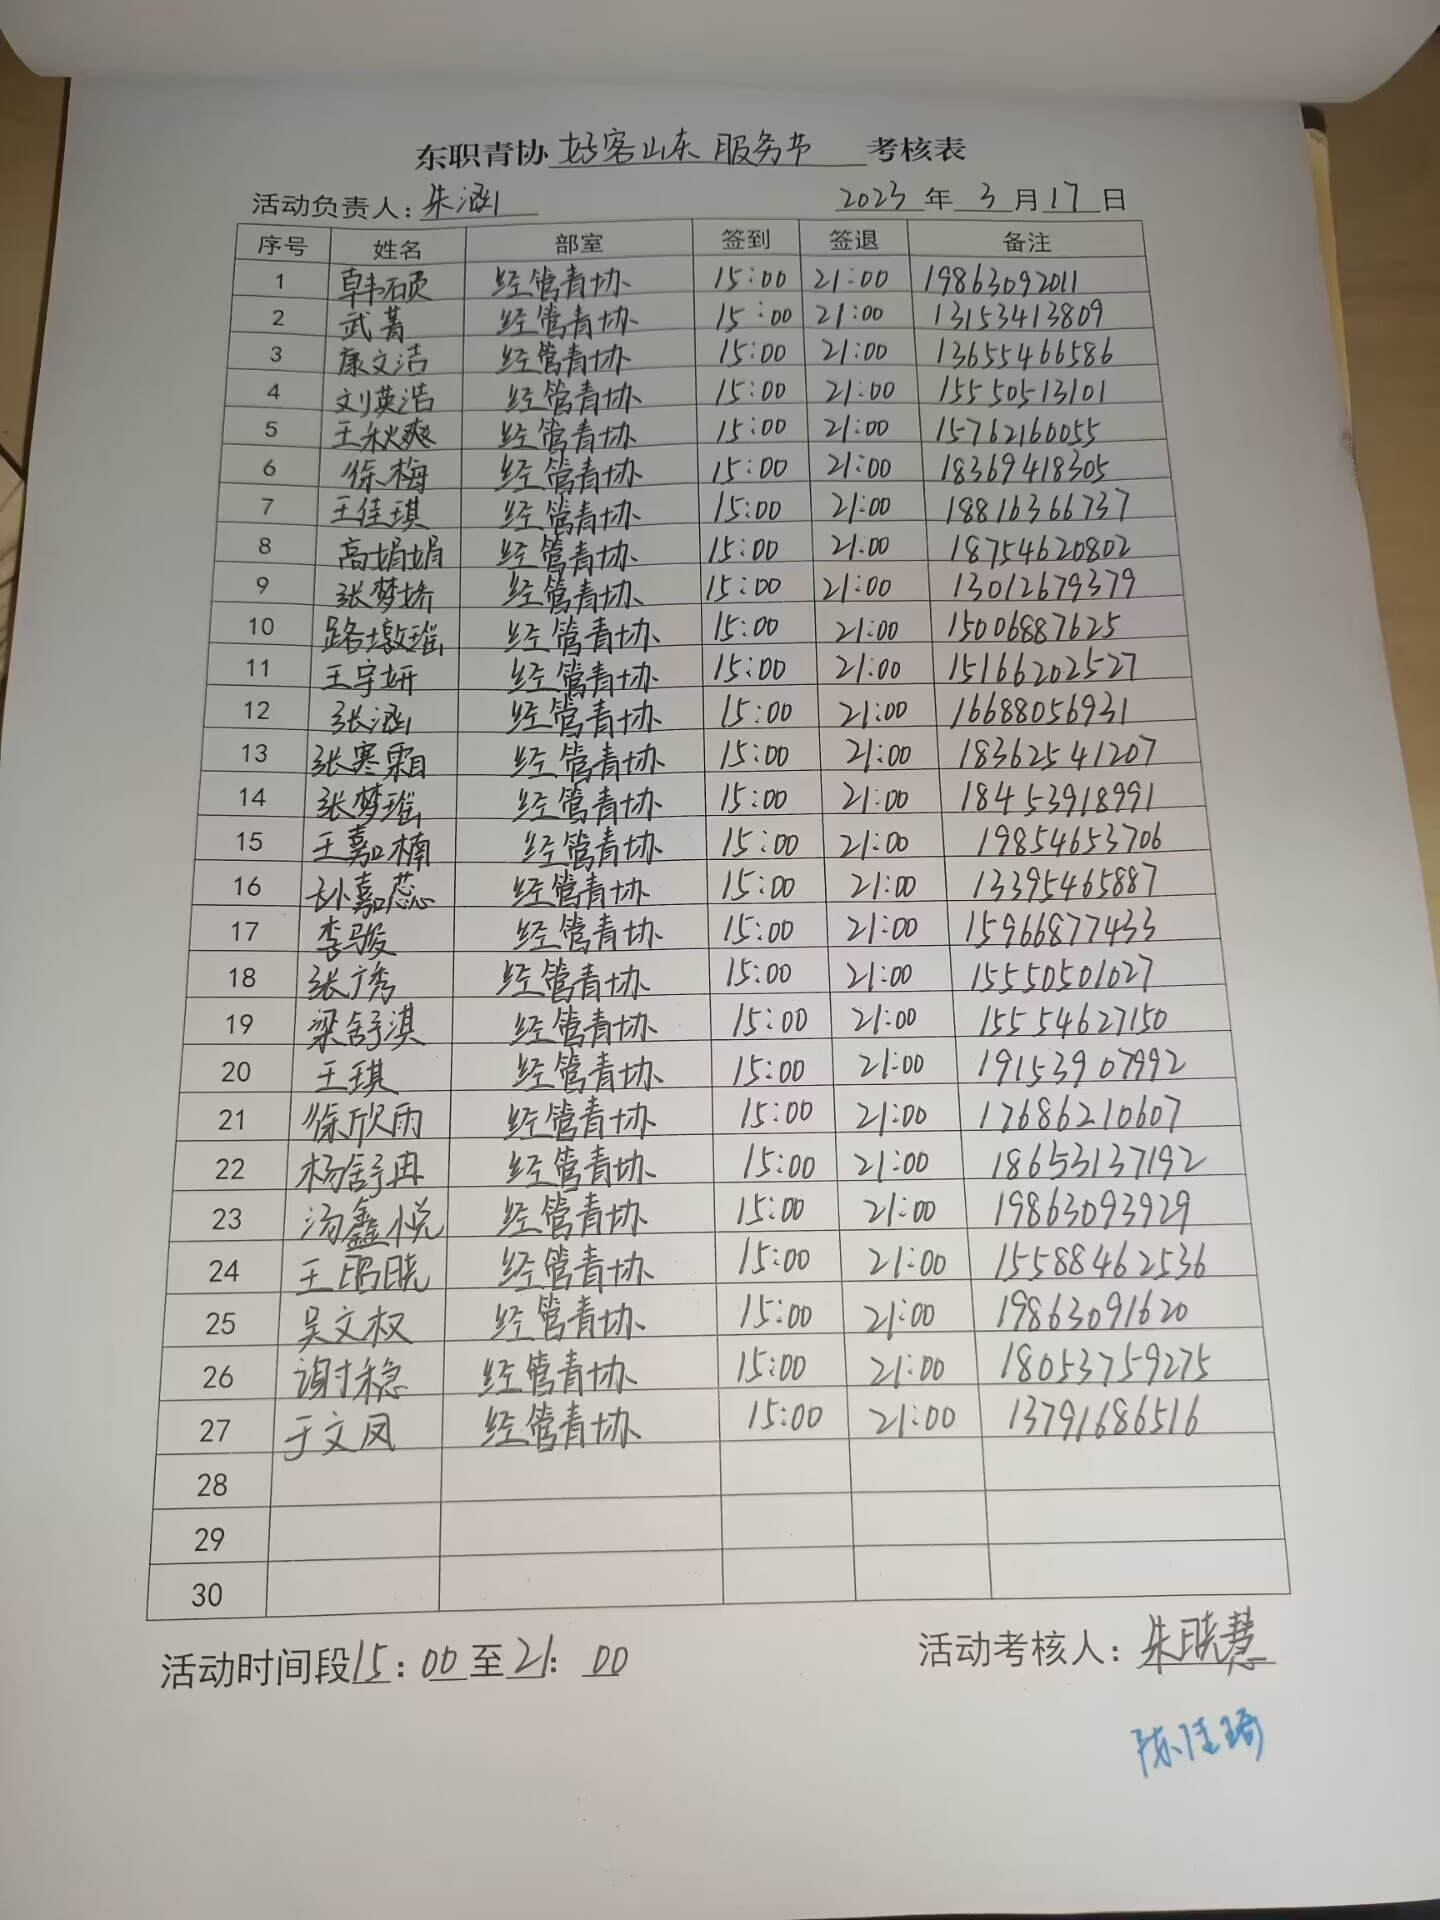 东职青协 好客山东 服务节 考核表
活动负责人：朱涵 2023 年 3 月 17 日
序号 姓名 部室 签到 签退 备注
1 韩硕 经管青协 15:00 21:00 19863092011
2 武菁 经管青协 15:00 21:00 13153413809
3 康文洁 经管青协 15:00 21:00 13655466586
4 刘英浩 经管青协 15:00 21:00 15550513101
5 王秋爽 经管青协 15:00 21:00 15762160055
6 徐梅 经管青协 15:00 21:00 18369418305
7 王佳琪 经管青协 15:00 21:00 18816366737
8 高娟娟 经管青协 15:00 21:00 18754620802
9 张梦娇 经管青协 15:00 21:00 13012679379
10 路墩瑶 经管青协 15:00 21:00 15006887625
11 王宇妍 经管青协 15:00 21:00 15166202527
12 张涵 经管青协 15:00 21:00 16688056931
13 张寒霜 经管青协 15:00 21:00 18362541207
14 张梦瑶 经管青协 15:00 21:00 18453918991
15 王嘉楠 经管青协 15:00 21:00 19854653706
16 孙嘉蕊 经管青协 15:00 21:00 13395465887
17 李骏 经管青协 15:00 21:00 15966877433
18 张广秀 经管青协 15:00 21:00 15550501027
19 梁舒淇 经管青协 15:00 21:00 15554627150
20 王琪 经管青协 15:00 21:00 19153907992
21 徐欣雨 经管青协 15:00 21:00 17686210607
22 杨舒冉 经管青协 15:00 21:00 18653137192
23 汤鑫悦 经管青协 15:00 21:00 19863093929
24 王晓 经管青协 15:00 21:00 15588462536
25 吴文权 经管青协 15:00 21:00 19863091620
26 谢稳 经管青协 15:00 21:00 18053759275
27 于文凤 经管青协 15:00 21:00 13791686516
28
29
30
活动时间段15：00至21：00 活动考核人：朱晓慧
陈佳琦